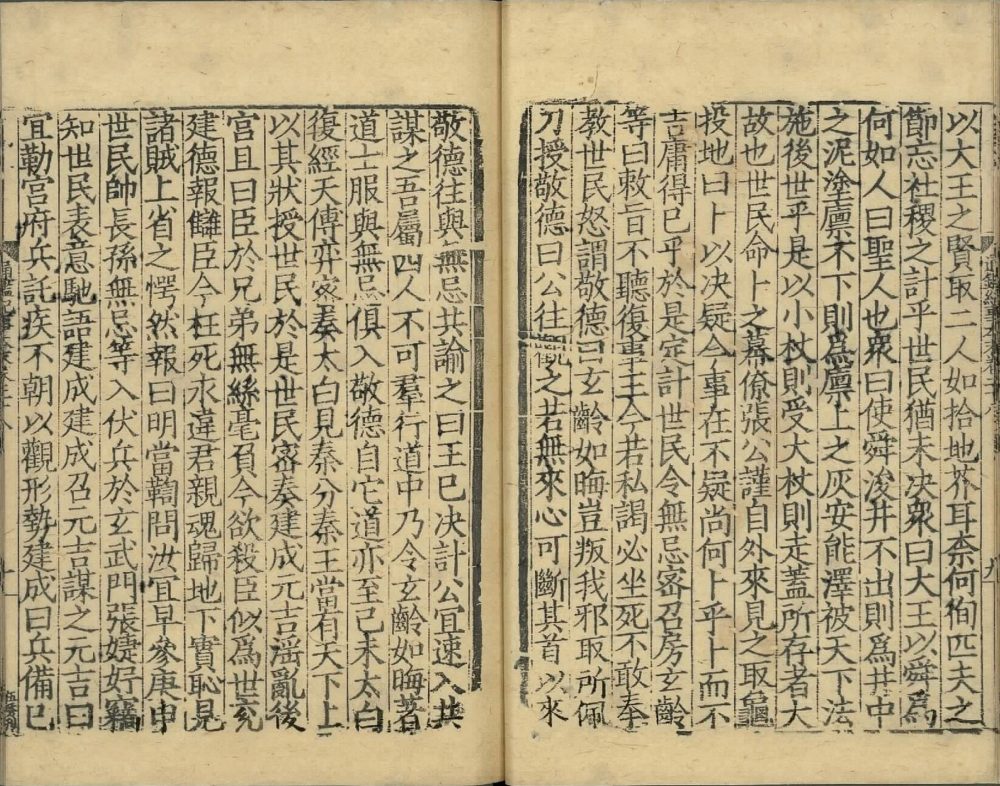 以大王之賢取二人如拾地芥耳柰何徇匹夫之
節忘社稷之計乎世民猶未决衆曰大王以舜爲
何如人曰聖人也衆曰使舜浚井不出則爲井中
之泥塗廪不下則爲廪上之灰安能澤被天下法
施後世乎是以小杖則受大杖則走蓋所存者大
故也世民命卜之幕僚張公謹自外來見之取龜
投地曰卜以决疑今事在不疑尚何卜乎卜而不
吉庸得已乎於是定計世民令無忌宻召房玄齡
等曰敕旨不聽復事王今若私謁必坐死不敢奉
教世民怒謂敬德曰玄齡如晦豈叛我邪取所佩
刀授敬德曰公往觀之若無來心可斷其首以來
敬德往與無忌共諭之曰王已决計公宜速入共
謀之吾屬四人不可羣行道中乃令玄齡如晦著
道士服與無忌俱入敬德自它道亦至己未太白
復經天傅弈宻奏太白見秦分秦王當有天下上
以其狀授世民於是世民宻奏建成元吉滛亂後
宫且曰臣於兄弟無絲毫負今欲殺臣似爲世充
建德報讎臣今枉死永違君親魂歸地下實恥見
諸賊上省之愕然報曰明當鞫問汝宜早參庚申
世民帥長孫無忌等入伏兵於玄武門張婕妤竊
知世民表意馳語建成建成召元吉謀之元吉曰
宜勒宫府兵託疾不朝以觀形勢建成曰兵備已